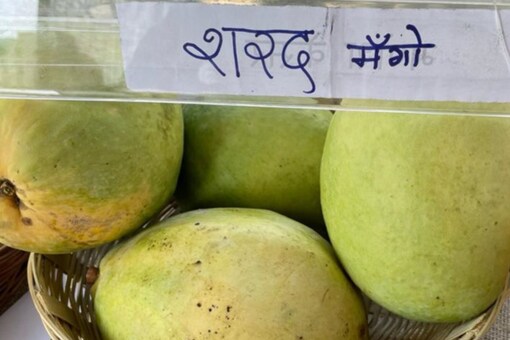 शरद मैँगो